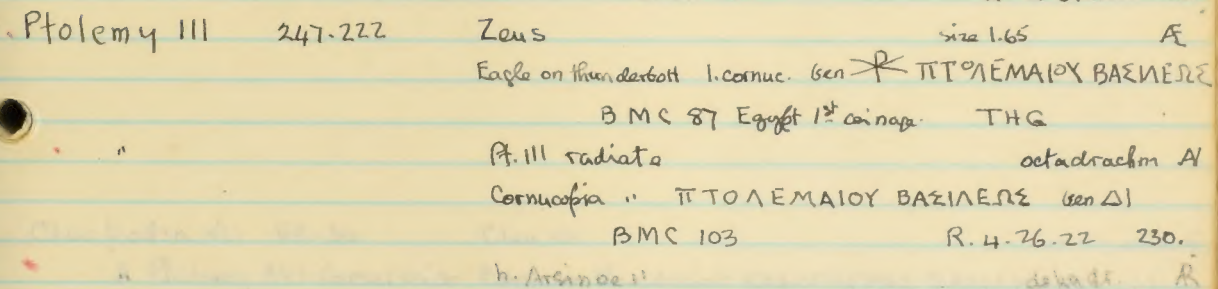 Ptolemy III 247-222 Zeus size 1.65 Æ
Eagle on thunderbolt l. cornuc. ΠΤΟΛΕΜΑΙΟΥ ΒΑΣΙΛΕΩΣ
BMC 87 Egypt 1st coinage. THG
" Pt. III radiate octadrachm A/
Cornucopia " ΠΤΟΛΕΜΑΙΟΥ ΒΑΣΙΛΕΩΣ ΔΙ
BMC 103 R. 4.26.22 230.
" h. Arsinoe II